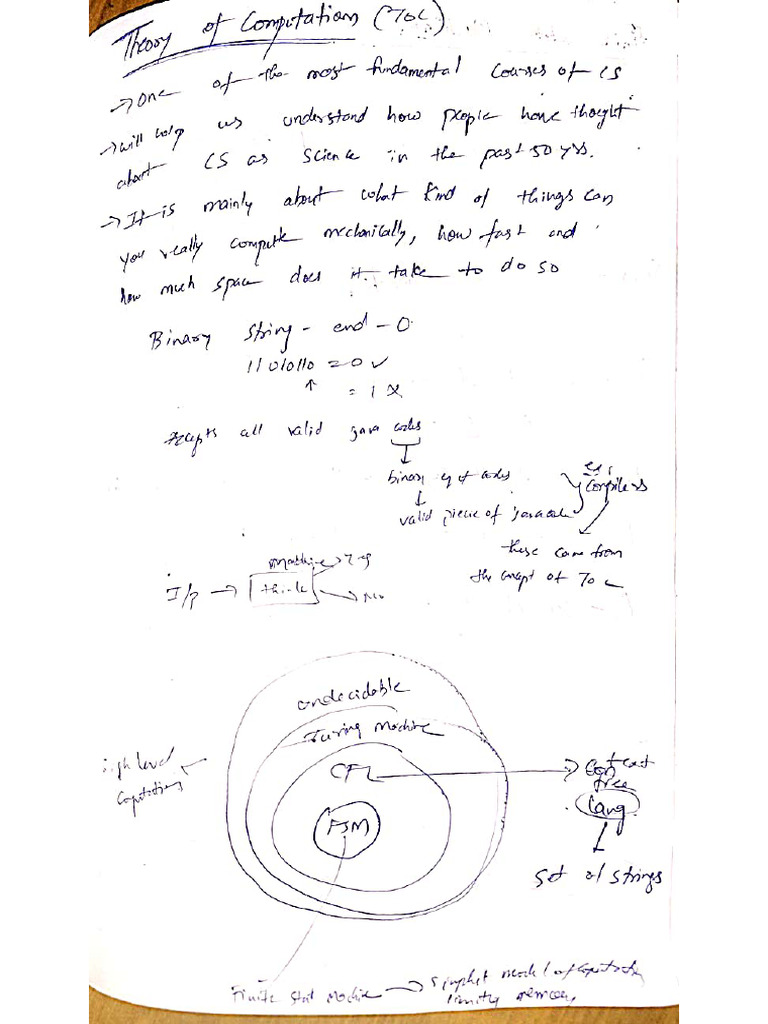 Theory of Computation (TOC)
→ One of the most fundamental courses of CS
→ will help us understand how people have thought
about CS as science in the past 50 yrs.
→ It is mainly about what kind of things can
you really compute mechanically, how fast and
how much space does it take to do so
Binary string - end - 0
11010110 = 0 ✓
↑
= 1 X
Accepts all valid java codes
↓
binary eq of codes
↓
valid piece of javacode
ex:
Compilers
these came from
the concept of TOC
I/P → think
machine
→ No
undecidable
Turing Machine
CFL → Context
free
Lang
↓
Set of strings
FSM
high level
computations
Finite State Machine → Simplest model of computation
memory